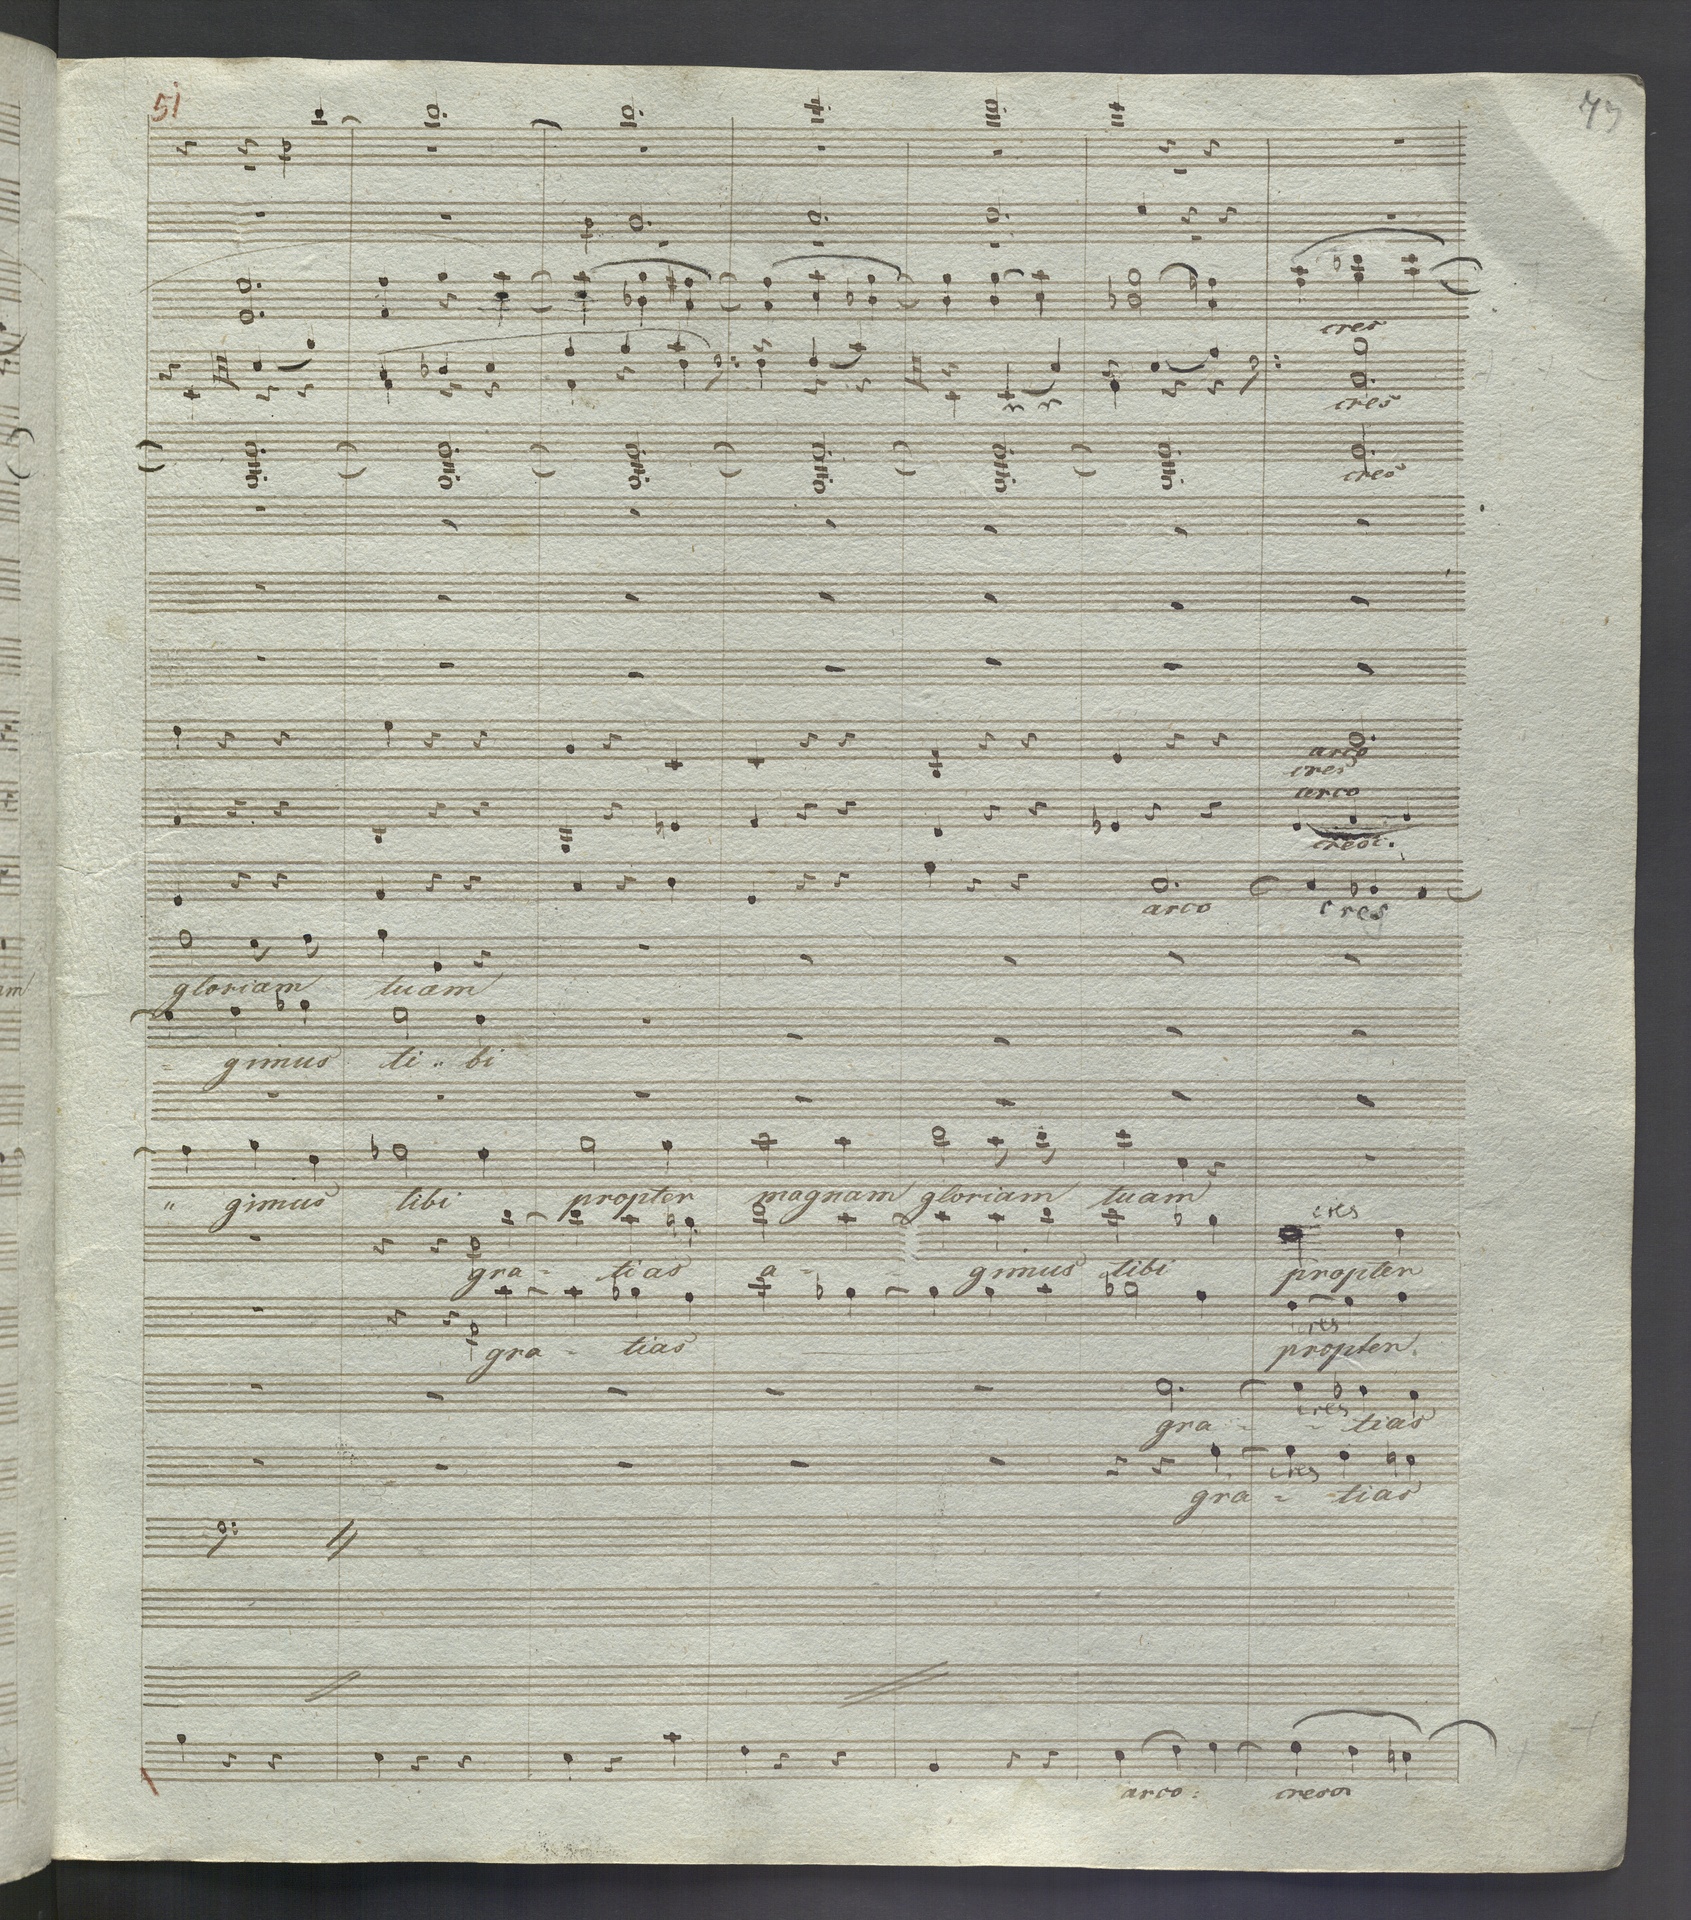 51
73
cres
cres
cres
arco
cres
arco
cresc.
arco cres
gloriam tuam
= gimus ti .. bi
" gimus tibi propter magnam gloriam tuam
cres
gra - tias a - gimus tibi propter
cres
gra - tias propter.
cres
gra - - tias
cres
gra - tias
arco : cresc